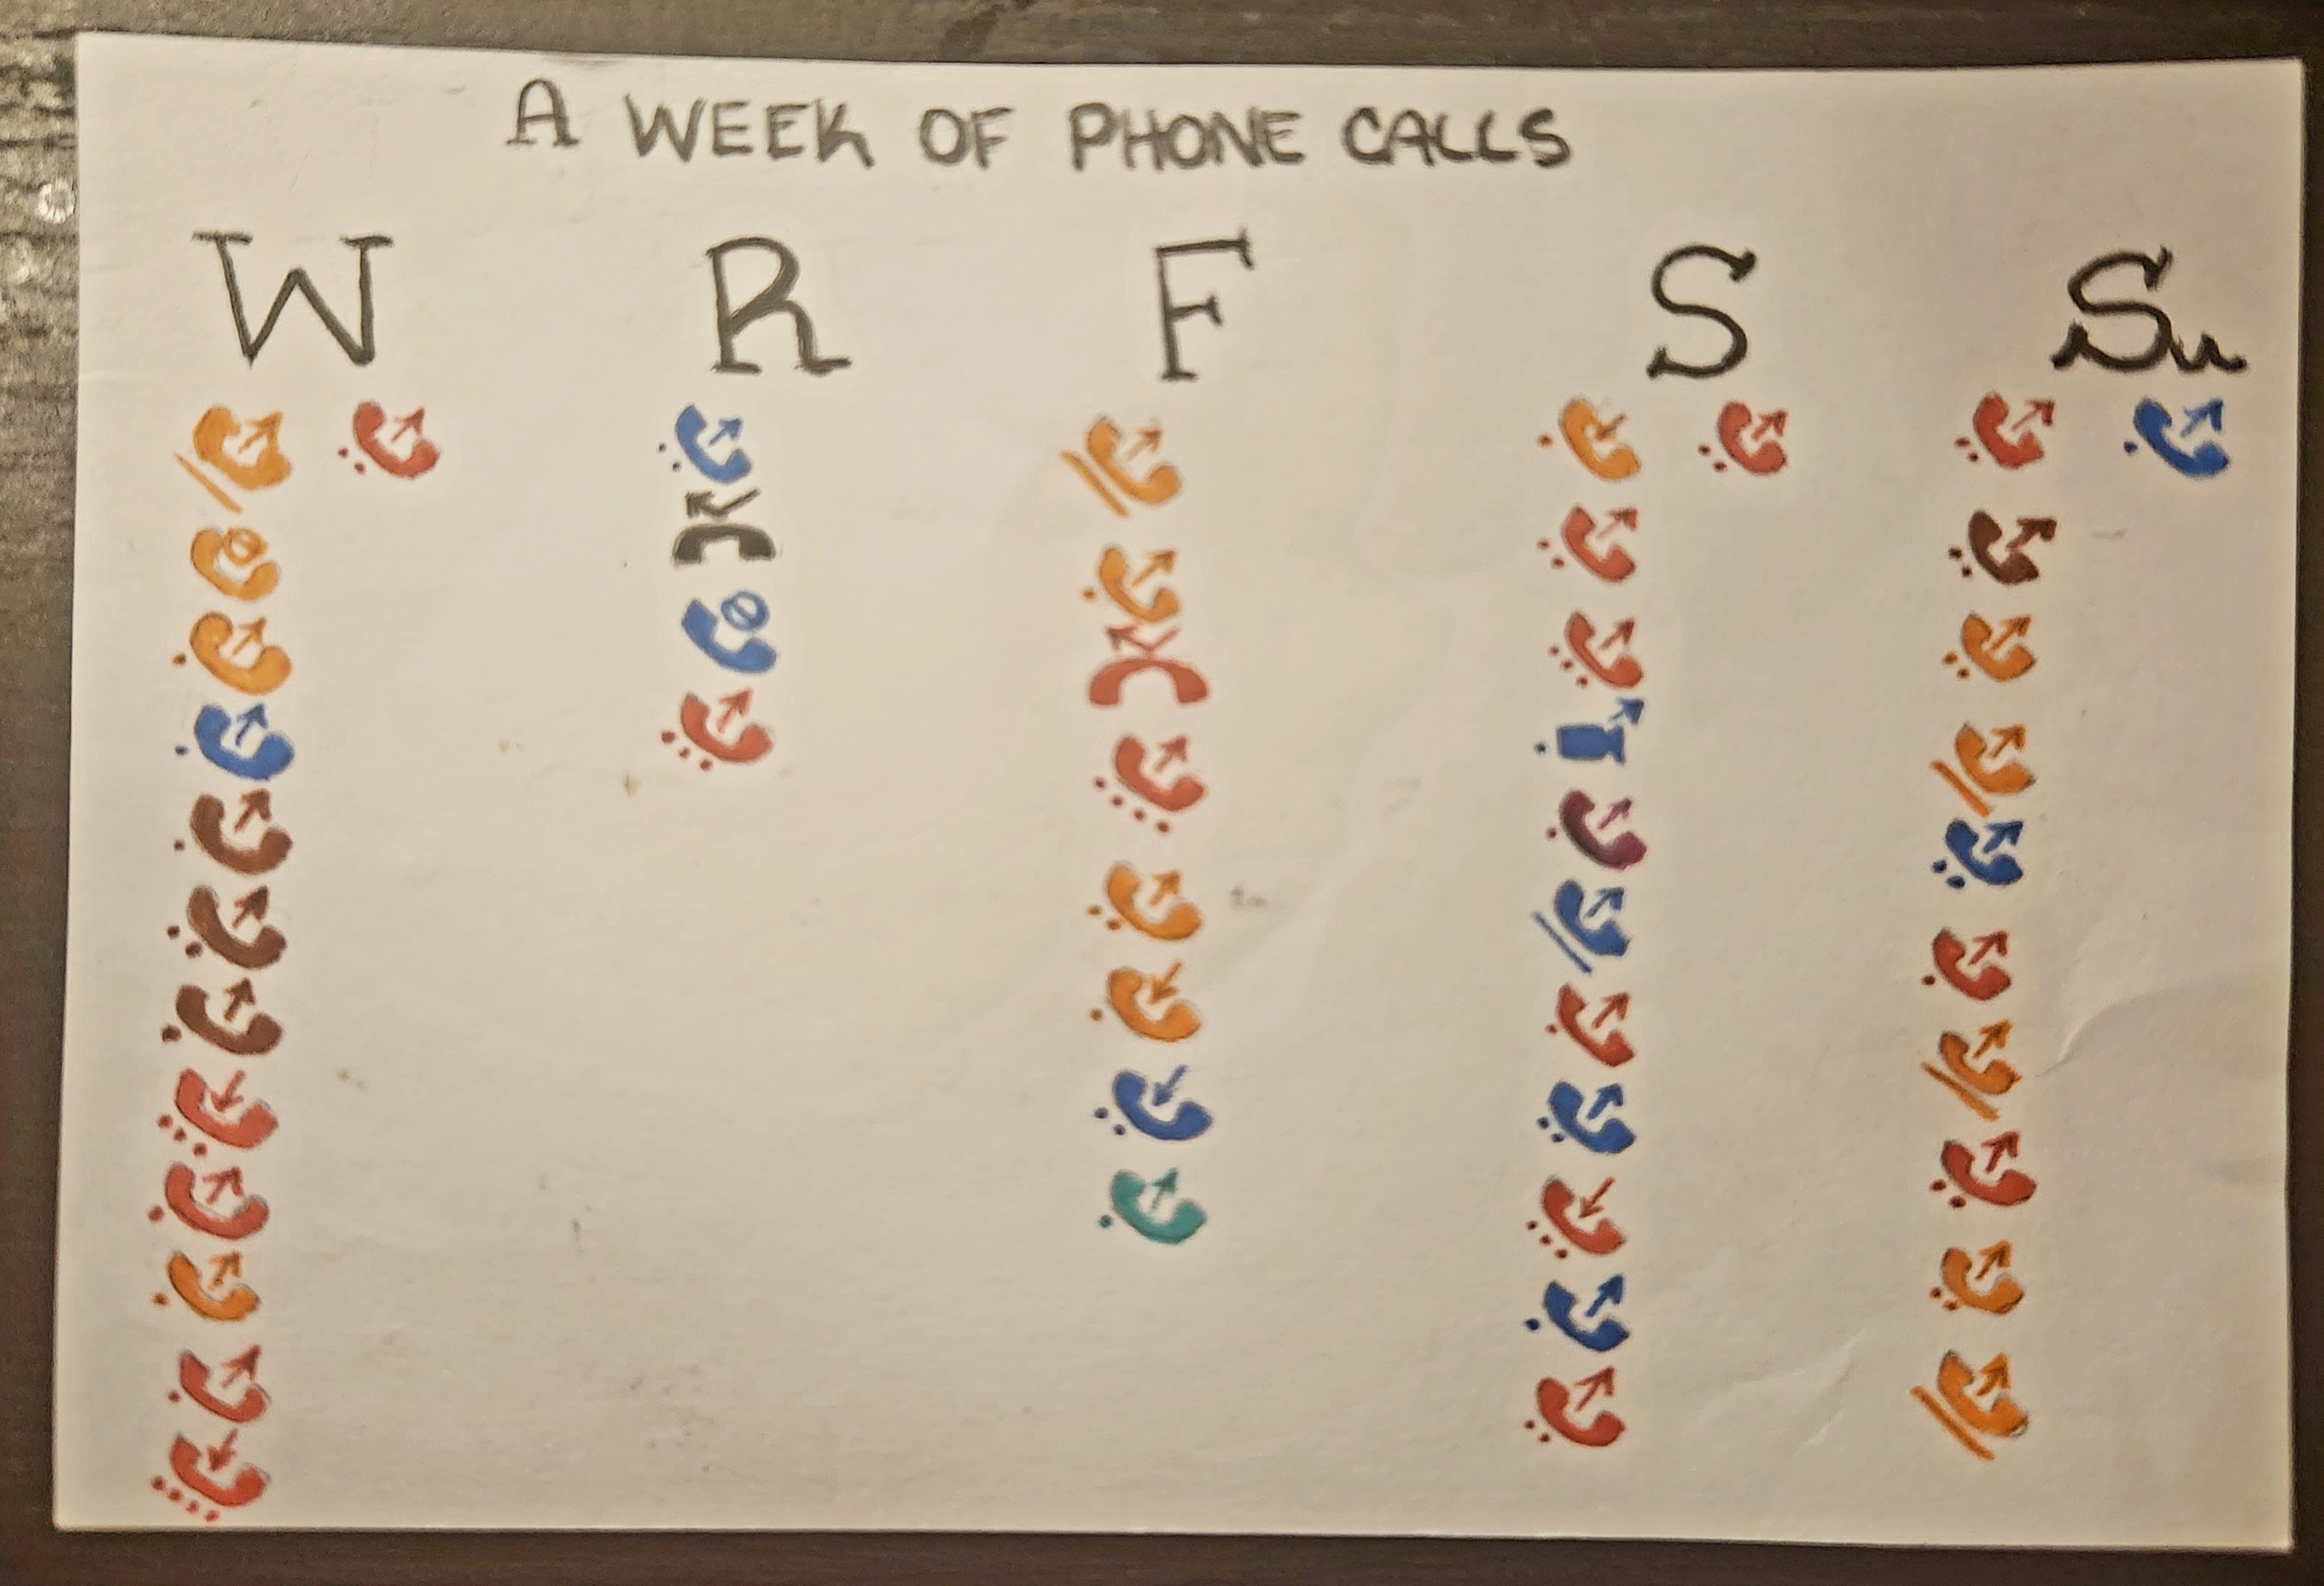 A WEEK OF PHONE CALLS
W R F S Su